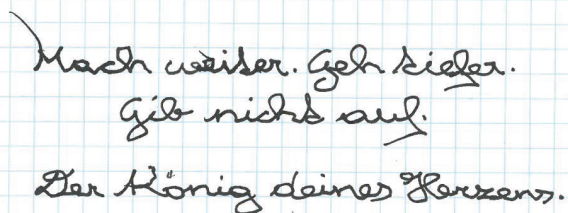 Mach weiter. Geh tiefer.
Gib nicht auf.
Der König deines Herzens.